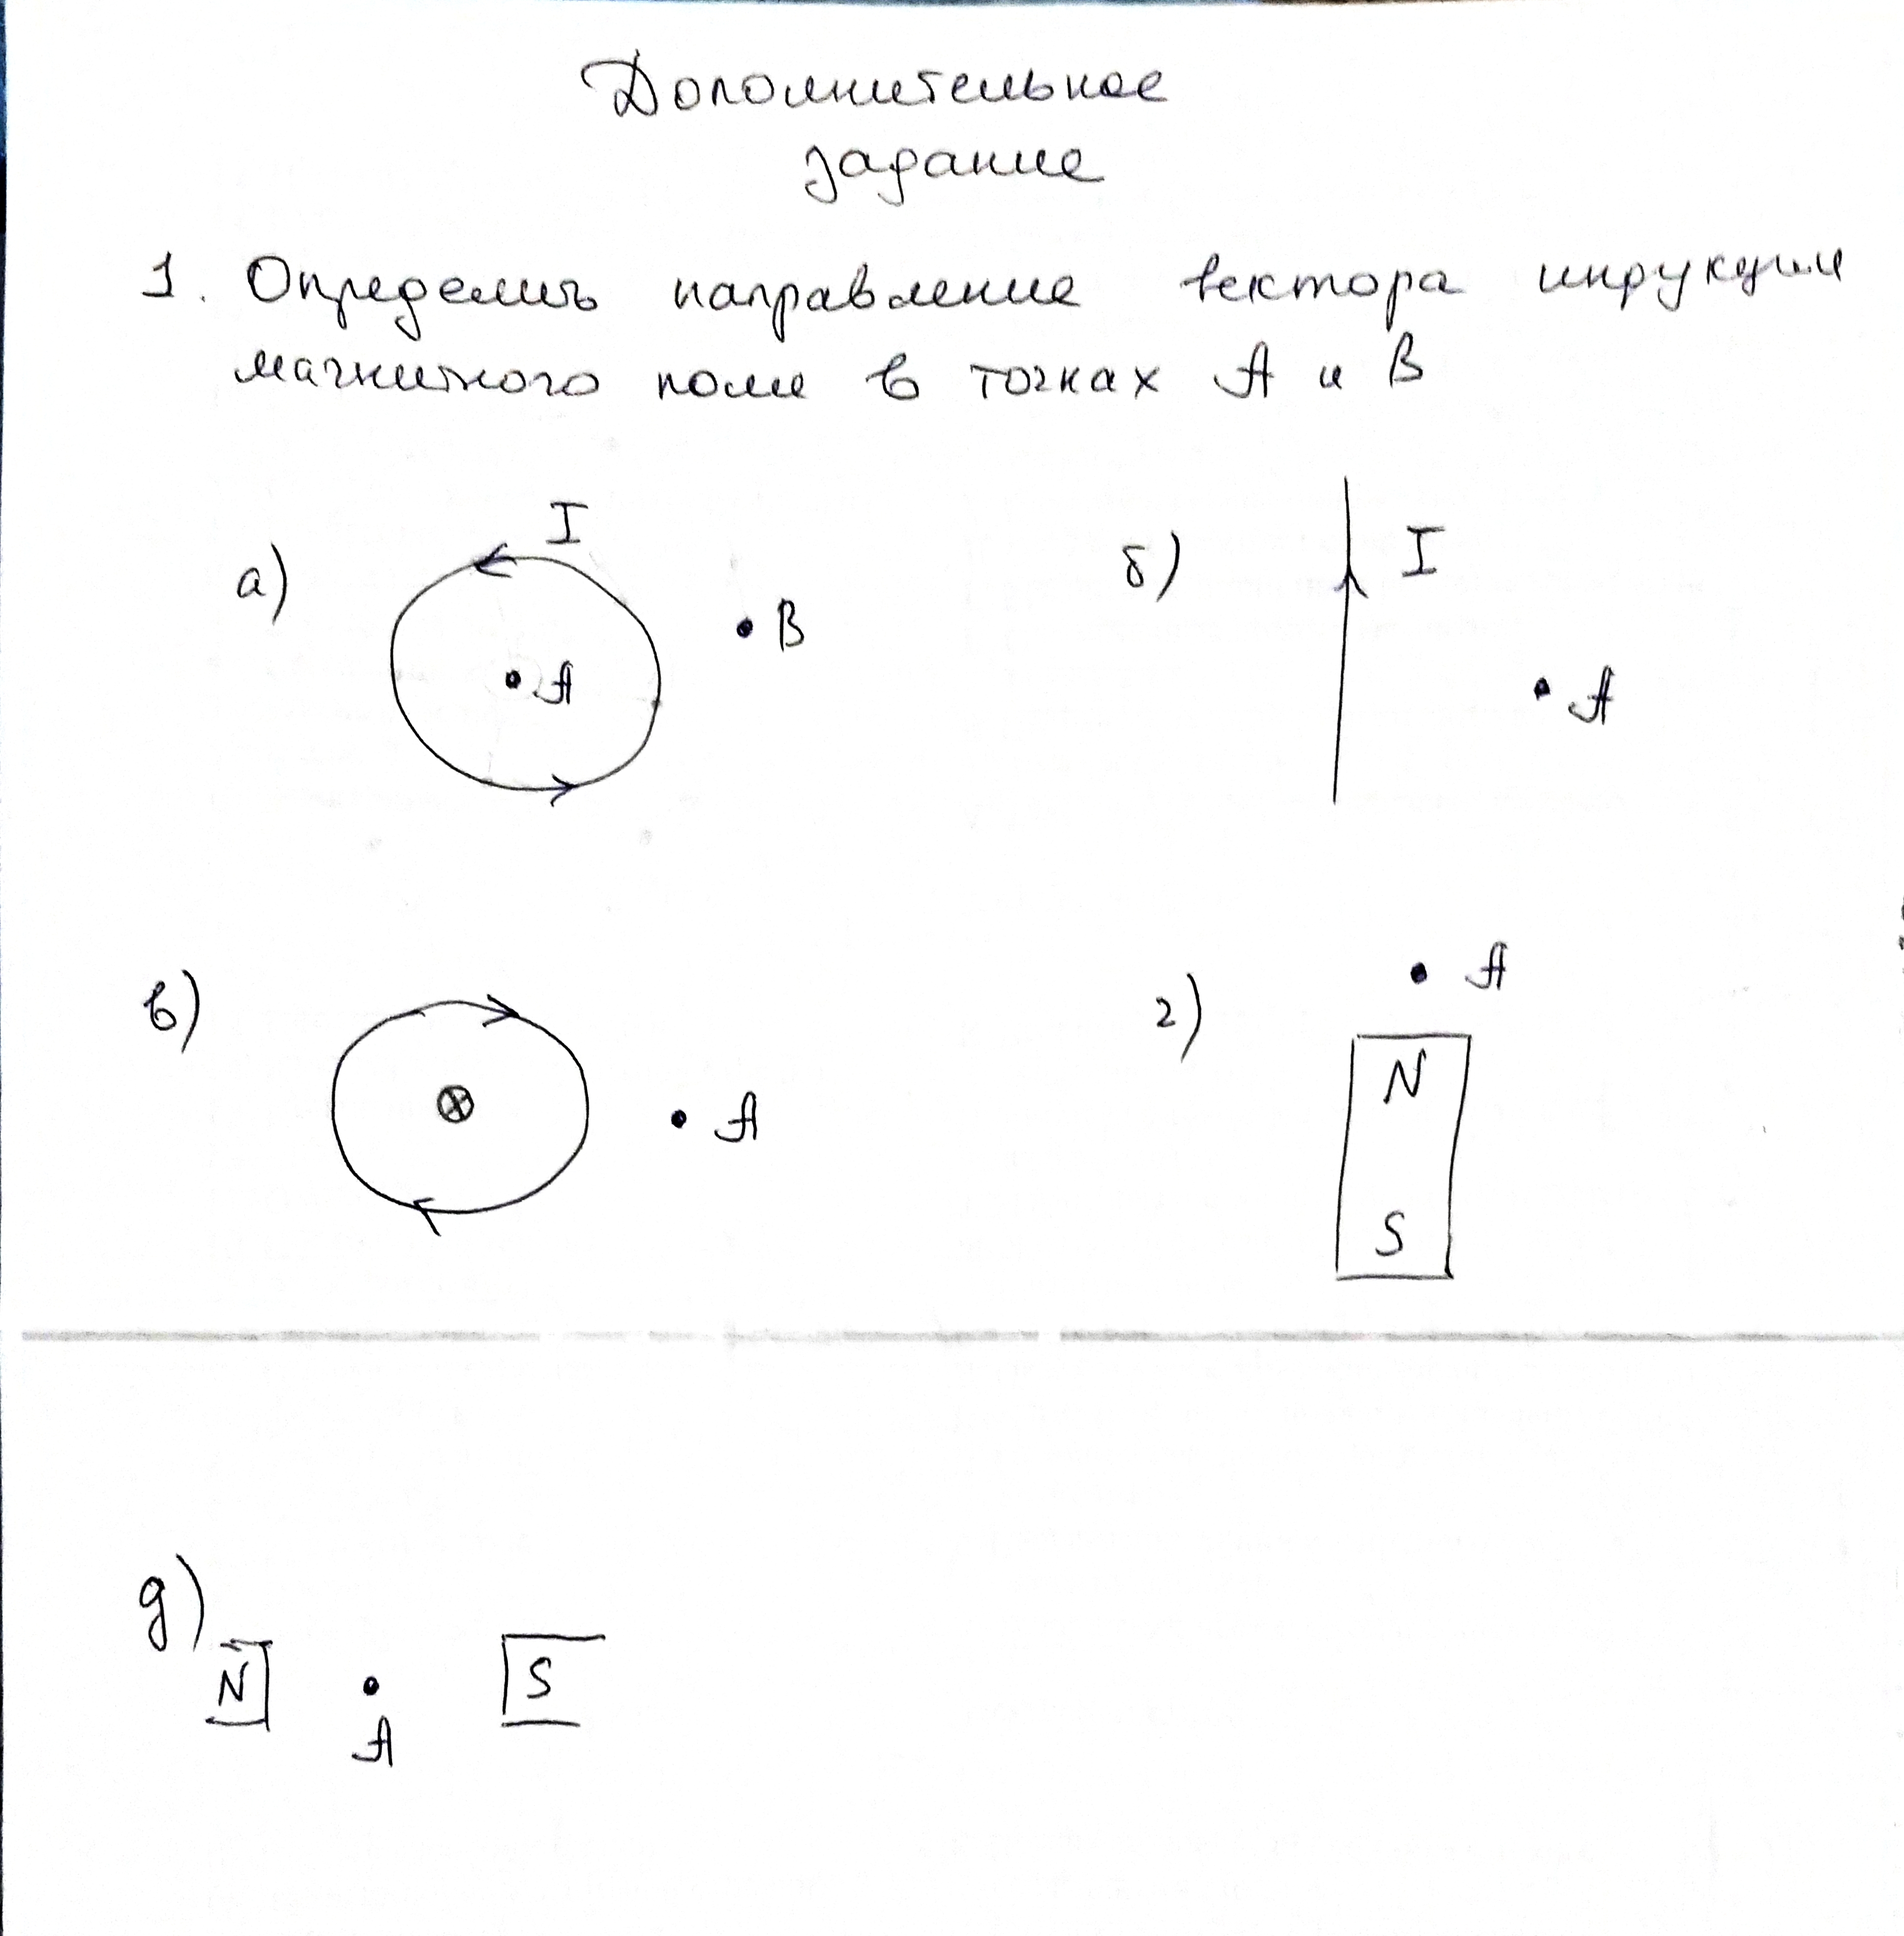 Дополнительное
задание
1. Определить направление вектора индукции
магнитного поля в точках А и В
а) I В А
б) I А
в) А
г) А N S
д) N А S